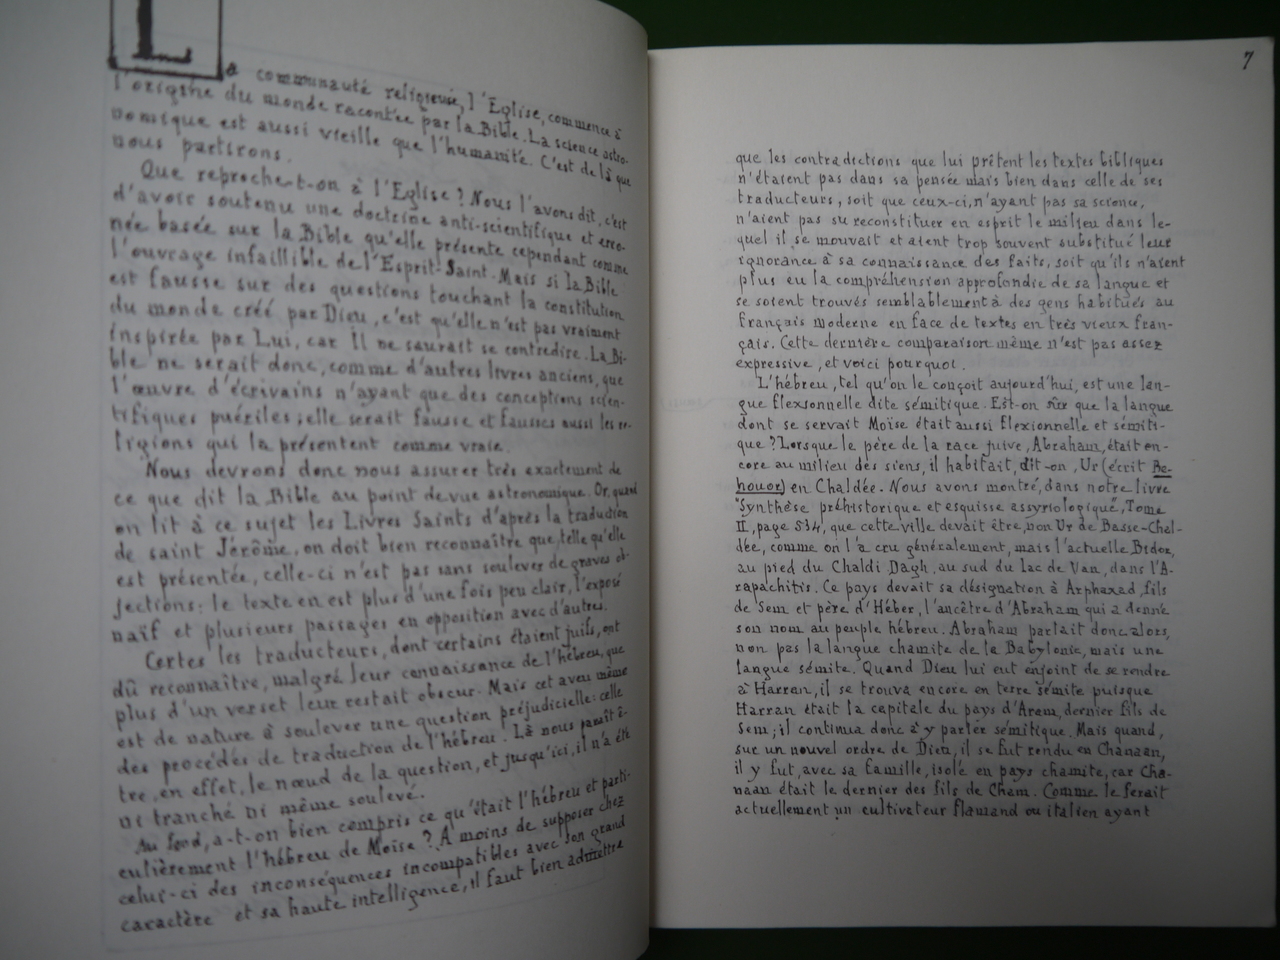 La communauté religieuse, l'Eglise, commence à
l'origine du monde racontée par la Bible. La science astro-
nomique est aussi vieille que l'humanité. C'est de là que
nous partirons.
Que reproche-t-on à l'Eglise? Nous l'avons dit, c'est
d'avoir soutenu une doctrine anti-scientifique et erro-
née basée sur la Bible qu'elle présente cependant comme
l'ouvrage infaillible de l'Esprit-Saint. Mais si la Bible
est fausse sur des questions touchant la constitution
du monde créé par Dieu, c'est qu'elle n'est pas vraiment
inspirée par Lui, car Il ne saurait se contredire. La Bi-
ble ne serait donc, comme d'autres livres anciens, que
l'œuvre d'écrivains n'ayant que des conceptions scien-
tifiques puériles; elle serait fausse et fausses aussi les re-
ligions qui la présentent comme vraie.
Nous devrons donc nous assurer très exactement de
ce que dit la Bible au point de vue astronomique. Or, quand
on lit à ce sujet les Livres Saints d'après la traduction
de saint Jérôme, on doit bien reconnaître que, telle qu'elle
est présentée, celle-ci n'est pas sans soulever de graves ob-
jections: le texte en est plus d'une fois peu clair, l'exposé
naïf et plusieurs passages en opposition avec d'autres.
Certes les traducteurs, dont certains étaient juifs, ont
dû reconnaître, malgré leur connaissance de l'hébreu, que
plus d'un verset leur restait obscur. Mais cet aveu même
est de nature à soulever une question préjudicielle: celle
des procédés de traduction de l'hébreu. Là nous paraît ê-
tre, en effet, le nœud de la question, et jusqu'ici, il n'a été
ni tranché ni même soulevé.
Au fond, a-t-on bien compris ce qu'était l'hébreu et parti-
culièrement l'hébreu de Moïse? A moins de supposer chez
celui-ci des inconséquences incompatibles avec son grand
caractère et sa haute intelligence, il faut bien admettre
7
que les contradictions que lui prêtent les textes bibliques
n'étaient pas dans sa pensée mais bien dans celle de ses
traducteurs, soit que ceux-ci, n'ayant pas sa science,
n'aient pas su reconstituer en esprit le milieu dans le-
quel il se mouvait et aient trop souvent substitué leur
ignorance à sa connaissance des faits, soit qu'ils n'aient
plus eu la compréhension approfondie de sa langue et
se soient trouvés semblablement à des gens habitués au
français moderne en face de textes en très vieux fran-
çais. Cette dernière comparaison même n'est pas assez
expressive, et voici pourquoi.
L'hébreu, tel qu'on le conçoit aujourd'hui, est une lan-
gue flexionnelle dite sémitique. Est-on sûr que la langue
dont se servait Moïse était aussi flexionnelle et sémiti-
que? Lorsque le père de la race juive, Abraham, était en-
core au milieu des siens, il habitait, dit-on, Ur (écrit Re-
houor) en Chaldée. Nous avons montré, dans notre livre
"Synthèse préhistorique et esquisse assyriologique", Tome
II, page 534, que cette ville devait être, non Ur de Basse-Chal-
dée, comme on l'a cru généralement, mais l'actuelle Bidor,
au pied du Chaldi Dagh, au sud du lac de Van, dans l'A-
rapachitis. Ce pays devait sa désignation à Arphaxad, fils
de Sem et père d'Héber, l'ancêtre d'Abraham qui a donné
son nom au peuple hébreu. Abraham parlait donc alors,
non pas la langue chamite de la Babylonie, mais une
langue sémite. Quand Dieu lui eut enjoint de se rendre
à Harran, il se trouva encore en terre sémite puisque
Harran était la capitale du pays d'Aram, dernier fils de
Sem; il continua donc à y parler sémitique. Mais quand,
sur un nouvel ordre de Dieu, il se fut rendu en Chanaan,
il y fut, avec sa famille, isolé en pays chamite, car Cha-
naan était le dernier des fils de Cham. Comme le ferait
actuellement un cultivateur flamand ou italien ayant